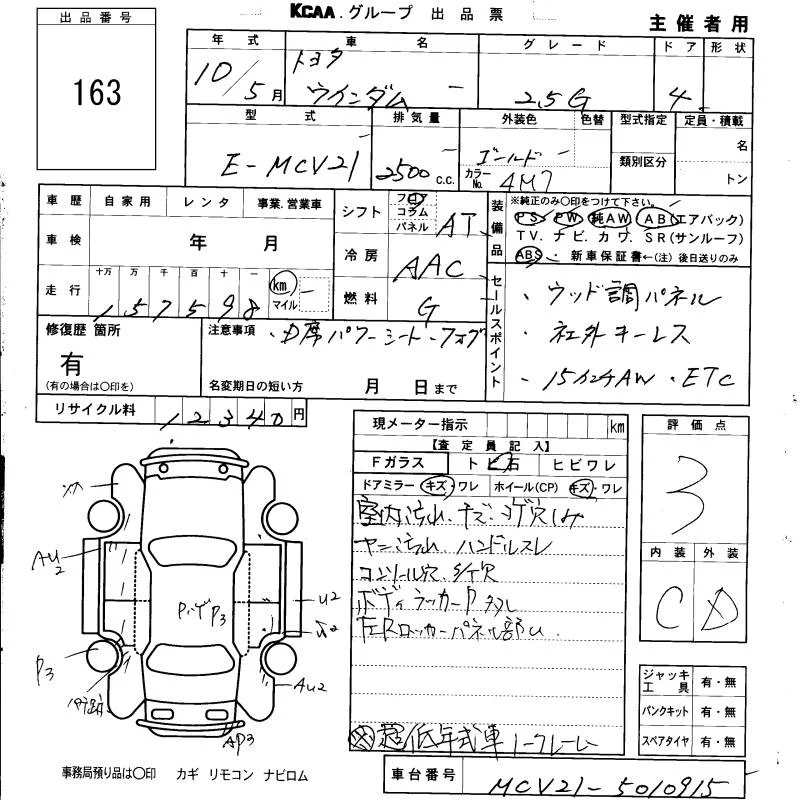 KCAA.グループ 出品票
主催者用
出品番号
163
年式 車名 グレード ドア 形状
10/5月 トヨタ ウインダム 2.5G 4
型式 排気量 外装色 色替 型式指定 定員・積載
E-MCV21 2500 c.c. ゴールド 名
カラーNo. 4M7 類別区分 トン
車歴 自家用 レンタ 事業.営業車
シフト フロア コラム パネル AT
装備品
※純正のみ〇印をつけて下さい。
PS PW 純AW AB(エアバック)
TV. ナビ. カワ. SR(サンルーフ)
ABS・新車保証書←(注)後日送りのみ
車検 年 月
冷房 AAC
走行 十万 万 千 百 十 一
157598 km マイル
燃料 G
セールスポイント
・ウッド調パネル
・社外キーレス
・15インチAW・ETC
修復歴 箇所
有
(有の場合は〇印を)
注意事項 ・D席パワーシート・フォグ
名変期日の短い方 月 日まで
リサイクル料 12340円
現メーター指示 km
【査定員記入】
Fガラス トビ石 ヒビワレ
ドアミラー キズ・ワレ ホイール(CP) キズ・ワレ
室内汚れ、キズ、コゲ穴
ヤニ汚れ ハンドルスレ
コンソール穴
ボディラッカーP
ロッカーパネル部U
評価点
3
内装 外装
C D
ジャッキ工具 有・無
パンクキット 有・無
スペアタイヤ 有・無
AU2
P3
U2
U2
AU2
AP3
P3
超低年式車 ノークレーム
事務局預り品は〇印 カギ リモコン ナビロム
車台番号 MCV21-5010915